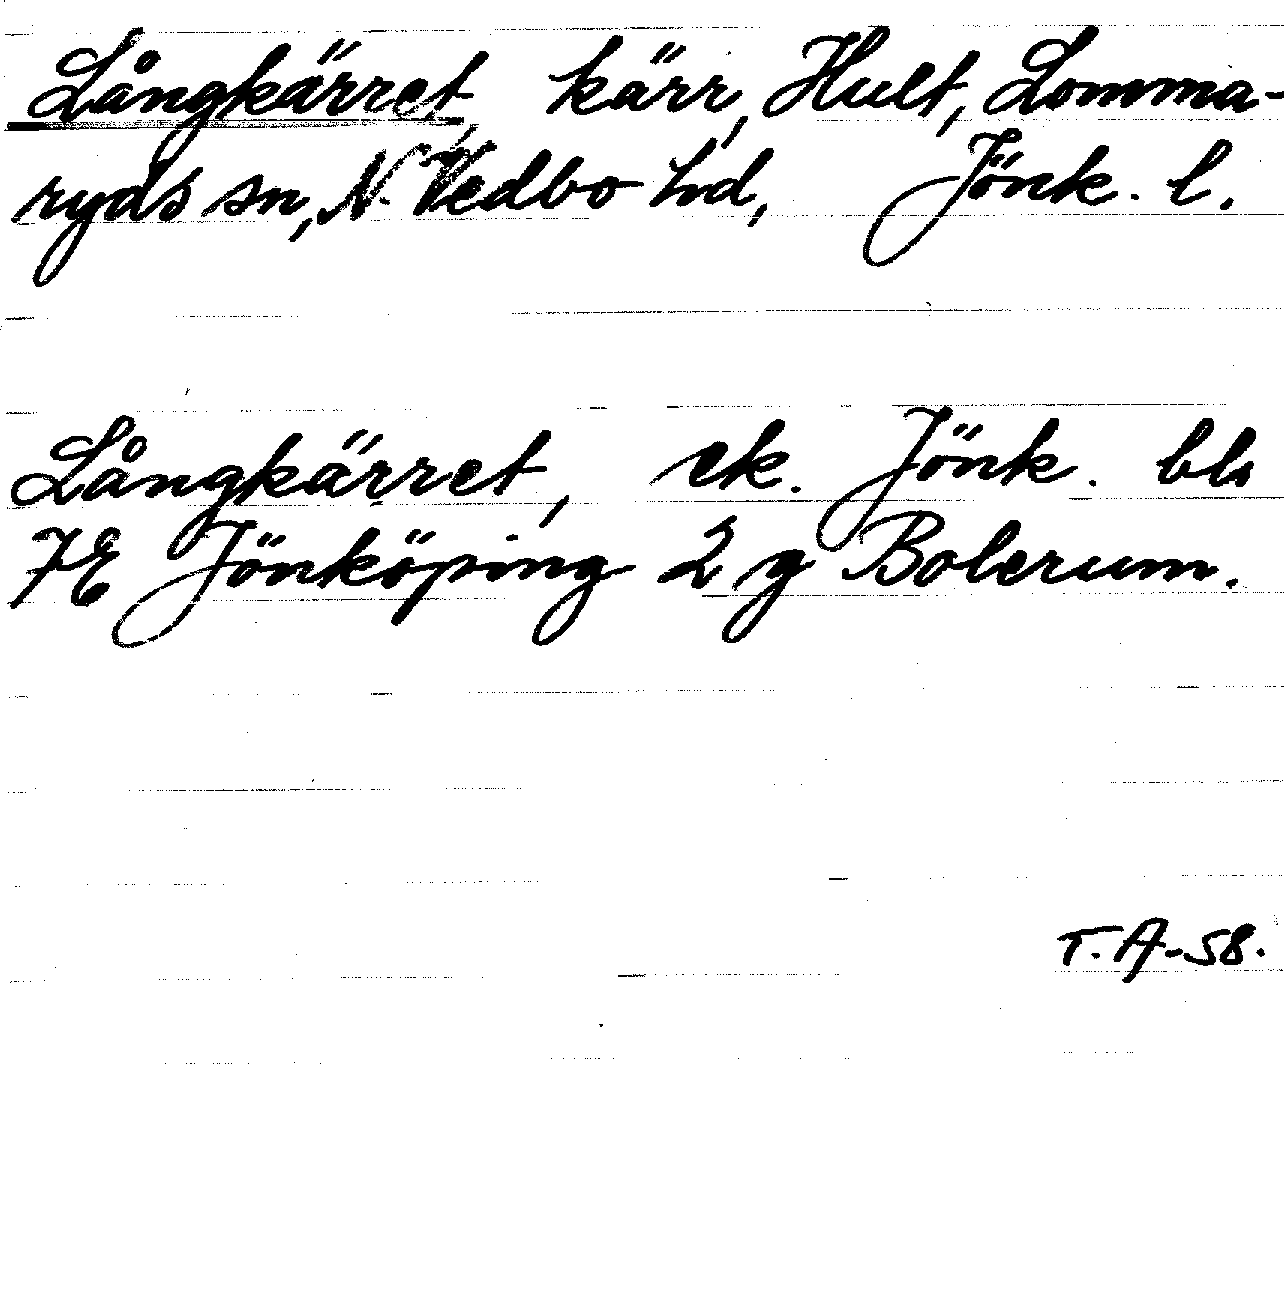 Långkärret, kärr, Hult, Lomma-
ryds sn, N. Vedbo hd, Jönk. l.
Långkärret, ek. Jönk. bls
7E Jönköping 2 g Bolerum.
T.A-58.